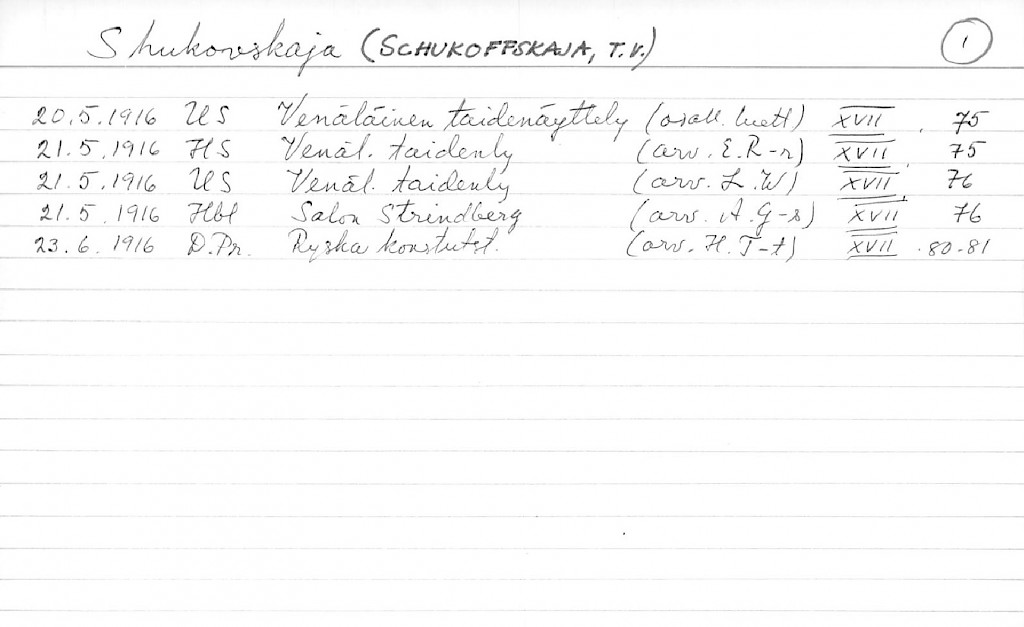 Shukovskaja (SCHUKOFFSKAJA, T.V.) 1
20.5.1916 US Venäläinen taidenäyttely (osall. luett) XVII 75
21.5.1916 HS Venäl. taidenly (arv. E.R-r) XVII 75
21.5.1916 US Venäl. taidenly (arv. L.W) XVII 76
21.5.1916 Hbl Salon Strindberg (arv. A.G-s) XVII 76
23.6.1916 D.Pr. Ryska konstutst. (arv. H.T-t) XVII 80-81